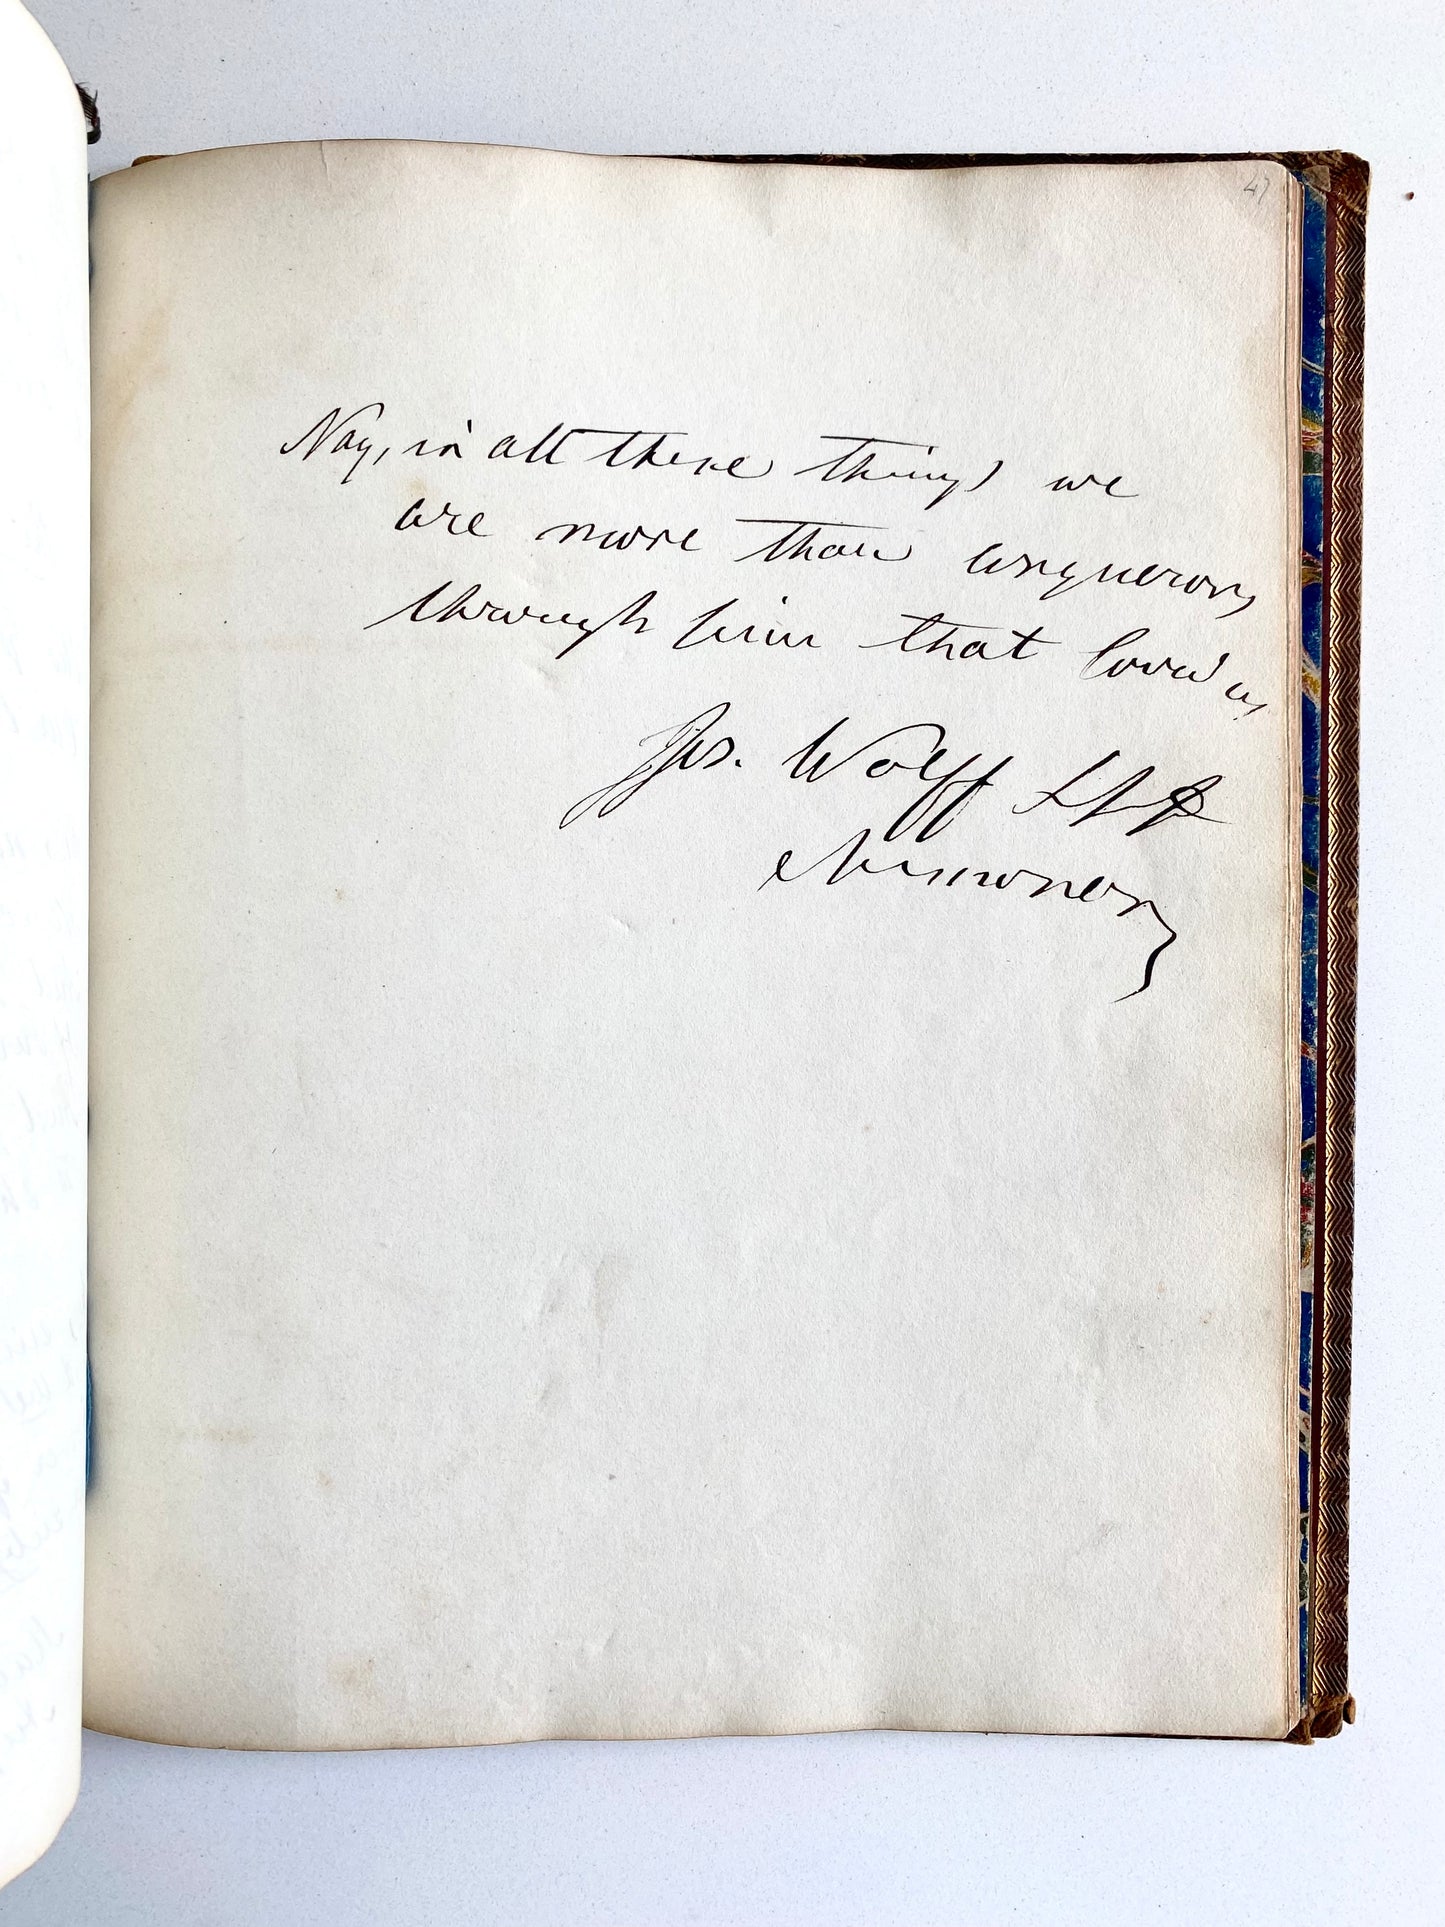 47
Nay, in all these things we
are more than conquerors
through him that lov'd us
Jos. Wolff
Missionary